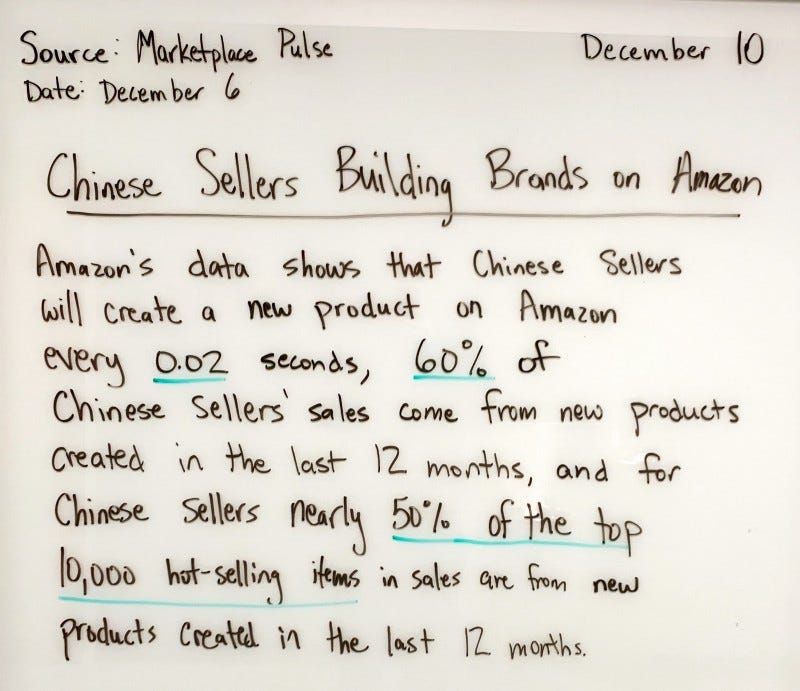 Source: Marketplace Pulse December 10
Date: December 6
Chinese Sellers Building Brands on Amazon
Amazon's data shows that Chinese Sellers
will create a new product on Amazon
every 0.02 seconds, 60% of
Chinese Sellers' sales come from new products
created in the last 12 months, and for
Chinese Sellers nearly 50% of the top
10,000 hot-selling items in sales are from new
products created in the last 12 months.